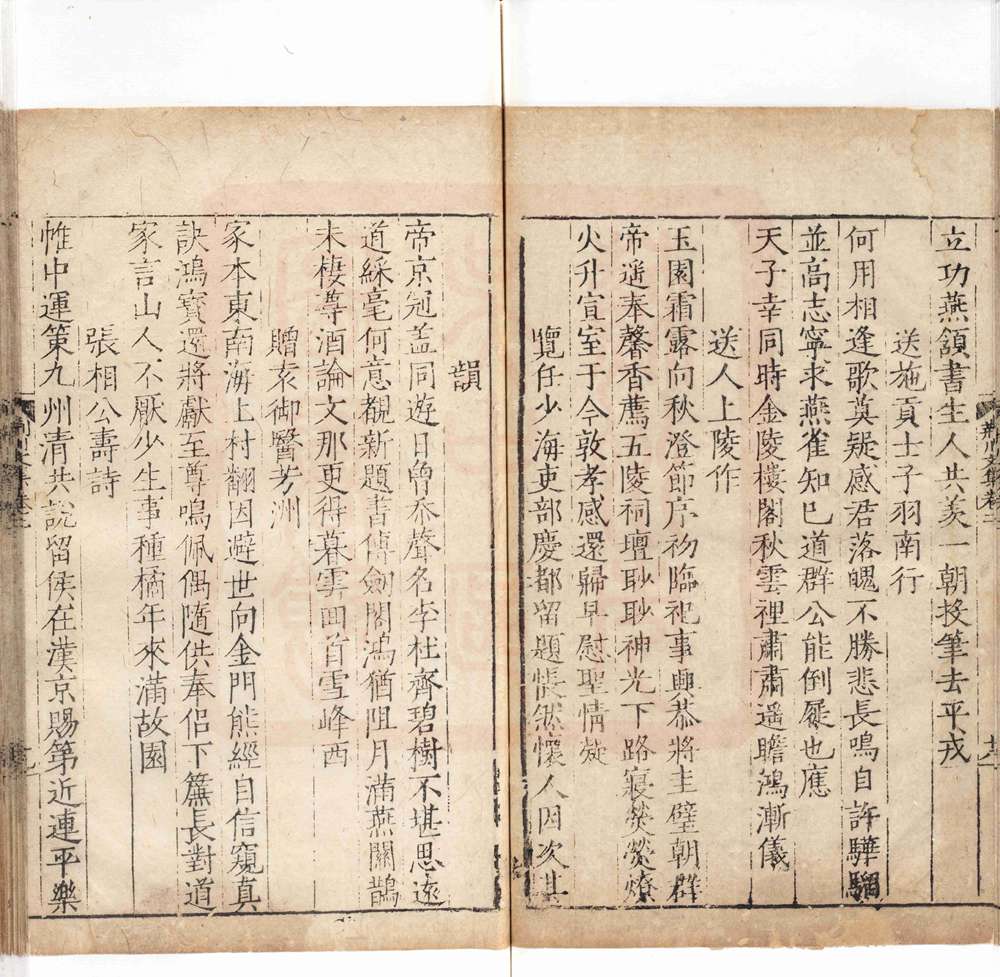 立功燕頷書生人共羨一朝投筆去平戎
送施貢士子羽南行
何用相逢歌莫疑感君落魄不勝悲長鳴自許驊騮
並高志寧求燕雀知巳道群公能倒屣也應
天子幸同時金陵樓閣秋雲裡肅肅遥瞻鴻漸儀
送人上陵作
玉園霜露向秋澄節序初臨祀事興恭將主璧朝群
帝遥奉馨香薦五陵祠壇聆聆神光下路寢熒熒燎
火升宣室于今敦孝感還歸早慰聖情凝
覽任少海吏部慶都留題悵然懷人因次其
韻
帝京冠盖同遊日曾忝聲名李杜齊碧樹不堪思遠
道綵毫何意覩新題書傳劍閣鴻猶阻月滿燕關鵲
未棲尊酒論文那更得暮雲囬首雪峰西
贈袁御醫芳洲
家本東南海上村翻因避世向金門熊經自信窺真
訣鴻寳還將獻至尊鳴佩偶隨供奉侣下簾長對道
家言山人不厭少生事種橘年來滿故園
張相公壽詩
帷中運策九州清共説留侯在漢京賜第近連平樂